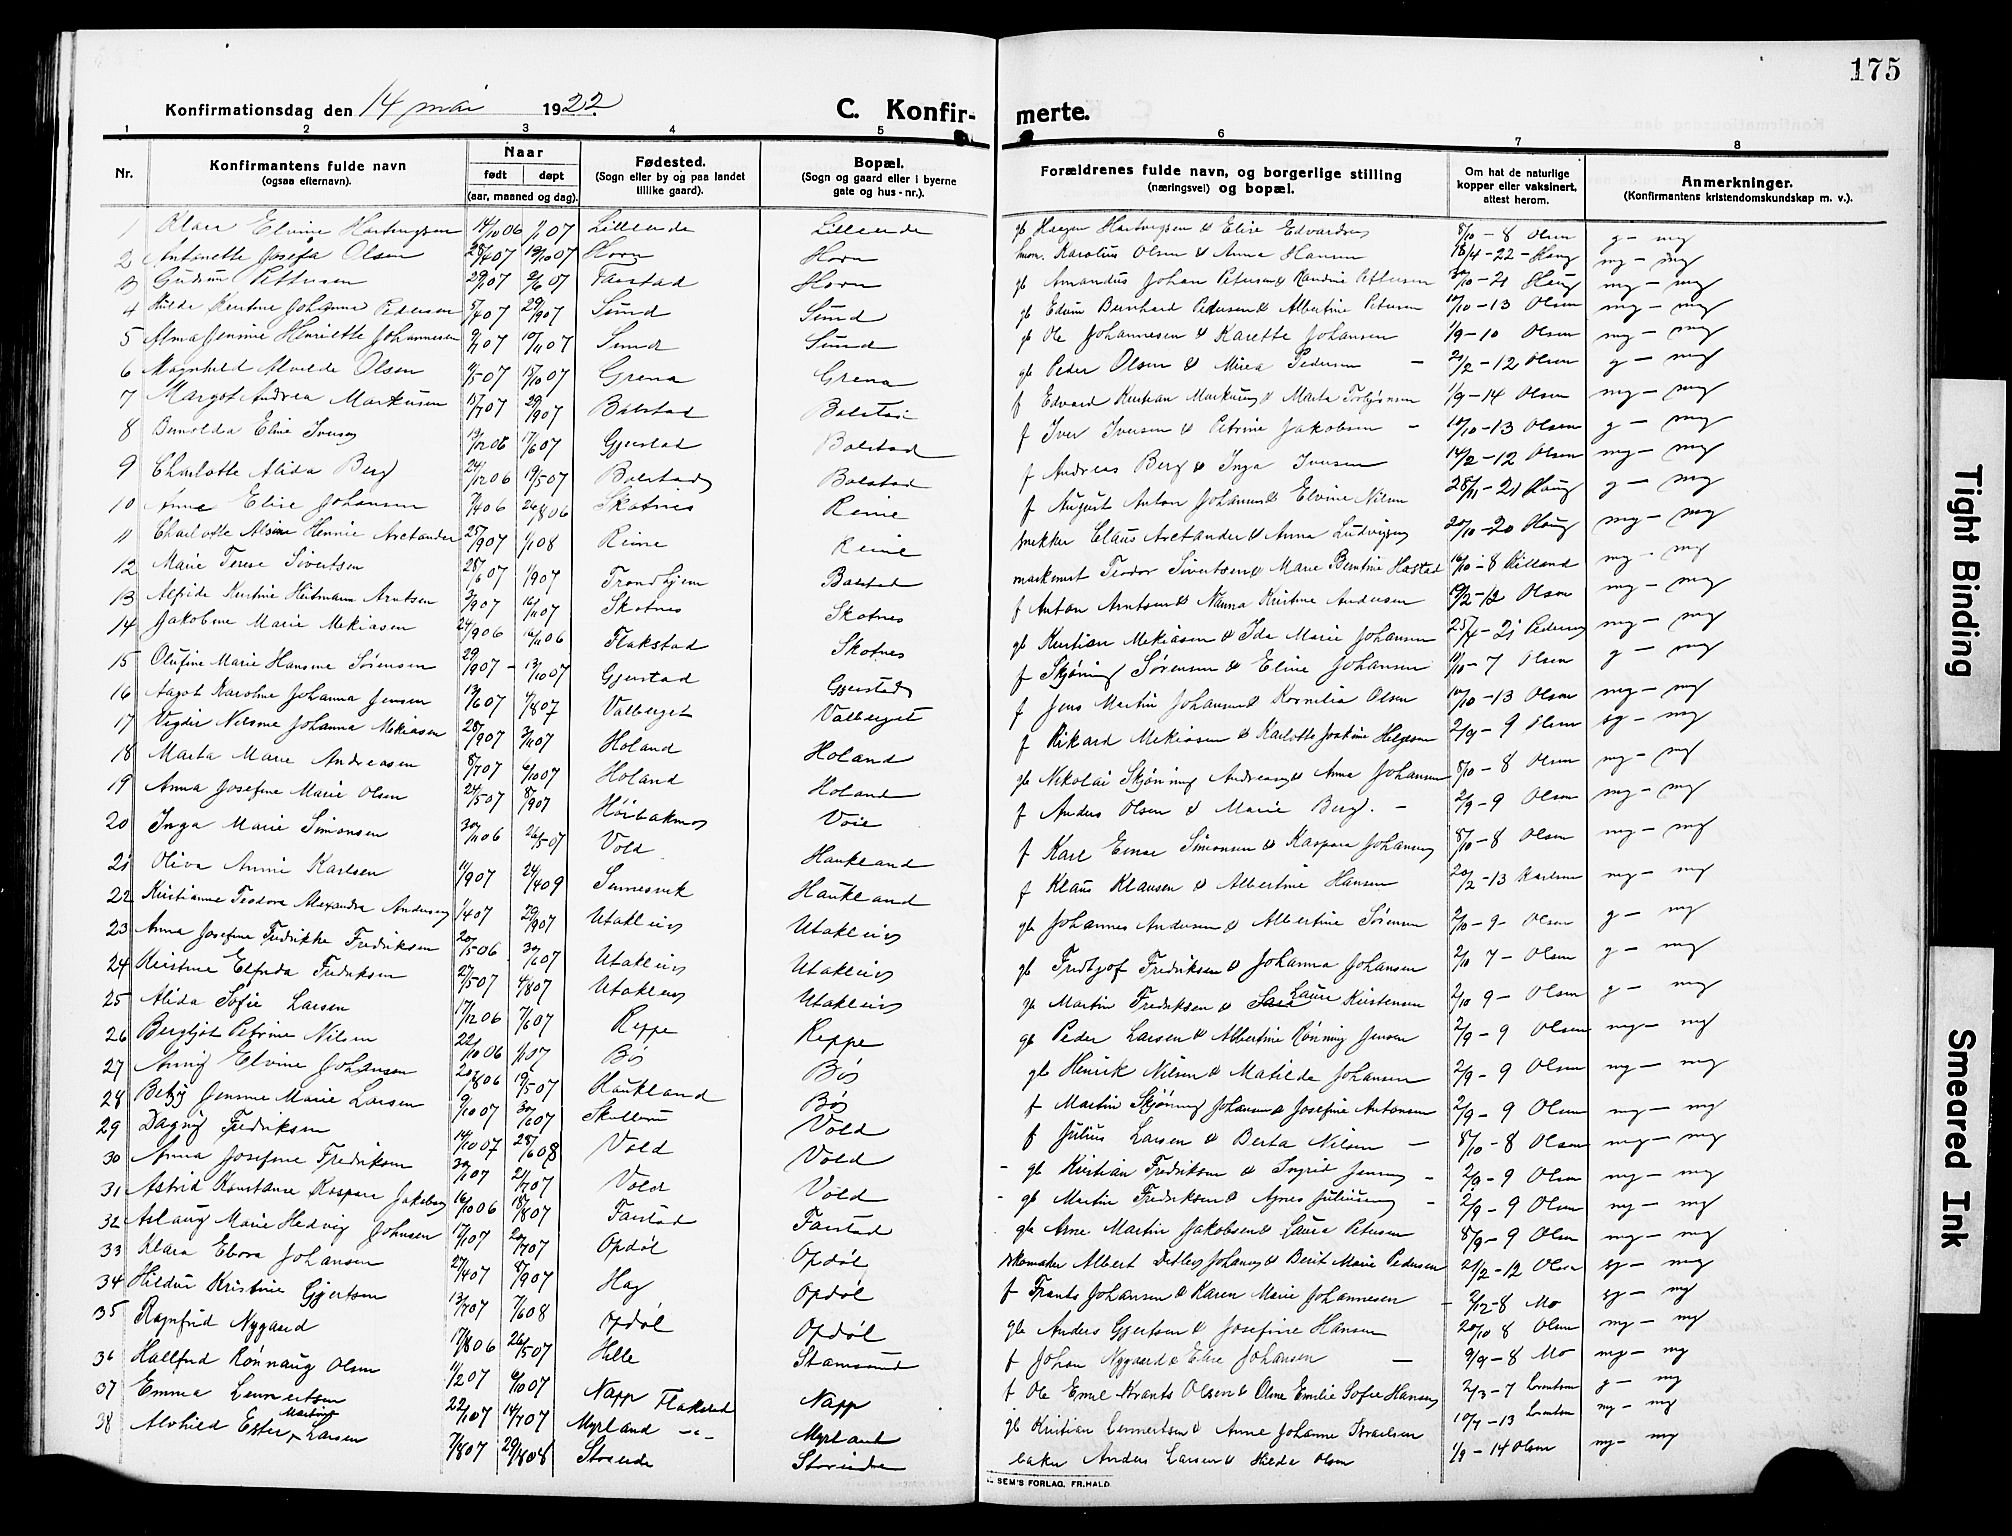 175
Konfirmationsdag den 14 mai 1922.
C. Konfir-
merte.
1 2 3 4 5 6 7 8
Nr.
Konfirmantens fulde navn
(ogsaa efternavn).
Naar
født døpt
(aar, maaned og dag).
Fødested.
(Sogn eller by og paa landet
tillike gaard).
Bopæl.
(Sogn og gaard eller i byerne
gate og hus - nr.).
Forældrenes fulde navn, og borgerlige stilling
(næringsvei) og bopæl.
Om hat de naturlige
kopper eller vaksinert,
attest herom.
Anmerkninger.
(Konfirmantens kristendomskundskap m. v.).
1 Elvine Hartvigsen Lilleeide Lilleeide Hartvigsen & Elise 8/10 – 8 Olsen g – mg
2 Antonette Josefa Olsen Horn Horn Karolius Olsen & Anna Hansen 18/4 – 22 – Haug mg – mg
3 Gudrun Pettersen Farstad Horn gb Amandus Johan Petersen & Pettersen 30/10 – 21 Haug mg – mg
4 Johanne Pedersen 5/4 07 29/9 07 Sund Sund gb Edvin Bernhard Pedersen & Albertine Petersen 10/10 – 13 Olsen mg – mg
5 Alma Jennie Henriette Johannesen Sund Sund gb Ole Johannesen & Karette Johansen 1/9 – 10 Olsen mg – mg
6 Magnhild Alvilde Olsen 15/10 07 Grena Grena gb Peder Olsen & Pedersen – 21/2 – 12 Olsen g – mg
7 Margot Andrea Markusen 15/7 07 29/9 07 Balstad Balstad f Edvard Kristian & Marta 1/9 – 14 Olsen mg – mg
8 Eline 13/12 06 17/6 07 Gjerstad Balstad f Iver Iversen & Petrine Jakobsen – 10/10 – 13 Olsen g – mg
9 Charlotte Alida Berg 24/12 06 19/5 07 Balstad Balstad f Andreas Berg & Inga Iversen 14/2 – 12 Olsen mg – mg
10 Anna Elise Johansen 26/8 06 Skotnes Reine f August Anton Johansen & Elvine Nilsen 28/11 – 21 Haug g – mg
11 Charlotte Hennie Arctander 25/9 07 1/1 08 Reine Reine snekker Claus Arctander & Anna Ludvigsen 20/10 – 20 Haug mg – mg
12 Marie Terese Sivertsen 28/6 07 1/9 07 Trondhjem Balstad Teodor Sivertsen & Marie Berntine 16/10 – 8 mg – mg
13 Alfride Kristine Heitmann Arntsen 3/9 07 Skotnes Skotnes f Anton Arntsen & Nanna Kristine Andersen 19/2 – 12 Olsen mg – mg
14 Jakobine Marie Mekiasen 24/9 06 Flakstad Skotnes gb Kristian Mekiasen & Ida Marie Johansen 25/4 – 21 mg – mg
15 Olufine Marie Hansine Sørensen 29/9 07 – 13/10 07 Gjerstad Gjerstad f Skjøning Sørensen & Eline Johansen 10/10 – 7 Olsen g – mg
16 Aagot Karoline Johanna Jensen 13/6 07 4/8 07 Valberget Valberget f Jens Martin Johansen & Kornelia Olsen 10/10 – 13 Olsen mg – mg
17 Johanna Mekiasen 28/9 07 3/11 07 Holand Holand f Rikard Mekiasen & Karlotte Joakine Helgesen 2/9 – 9 Olsen sg – mg
18 Marta Marie Andreasen 8/7 07 6/10 07 Holand Holand gb Nikolai Skjøning Andreasen & Anna Johansen 8/10 – 8 Olsen mg – mg
19 Anna Josefine Marie Olsen 24/5 07 8/9 07 Voie f Anders Olsen & Marie Berg. – 2/9 – 9 Olsen mg – mg
20 Inga Marie Simonsen 30/11 06 26/5 07 Vold Haukland f Karl Einar Simonsen & Kaspara Johansen 8/10 – 8 Olsen mg – mg
21 Oliva Annie Karlsen 11/9 07 24/4 09 Haukland f Klaus Klausen & Albertine Hansen 20/2 – 13 Karlsen mg – mg
22 Kristianne Teodora Alexandra Andersen 1/4 07 29/9 07 Utakleiv Utakleiv gb Johannes Andersen & Albertine Sørensen 2/10 – 9 – Olsen g – mg
23 Anna Josefine Fredrikke Fredriksen 20/5 06 30/6 07 Utakleiv Utakleiv gb Fredtjof Fredriksen & Johanna Johansen 2/10 7 – Olsen g – mg
24 Kristine Elfrida Fredriksen 27/5 07 4/8 07 Utakleiv Utakleiv gb Martin Fredriksen & Laura Kristensen 2/10 9 – Olsen g – mg
25 Alida Sofie Larsen 17/12 06 7/6 07 Reppe Reppe gb Peder Larsen & Albertine Rønning Jensen 2/9 – 9 Olsen mg – mg
26 Bergljot Petrine Nilsen 22/10 06 1/1 07 Bø Bø gb Henrik Nilsen & Matilde Johansen 2/9 – 9 Olsen mg – mg
27 Annie Elvine Johansen 20/8 06 19/5 07 Haukland Bø f Martin Skjøning Johansen & Josefine Antonsen 2/9 – 9 Olsen mg – mg
28 Betzy Jensine Marie Larsen 9/10 07 30/6 07 Vold f Julius Larsen & Berta Nilsen – 8/10 – 8 Olsen mg – mg
29 Dagny Fredriksen 14/10 07 28/6 08 Vold Vold gb Kristian Fredriksen & Ingrid – 2/9 – 9 Olsen mg – mg
30 Anna Josefine Fredriksen 30/1 07 21/7 07 Vold Vold gb Martin Fredriksen & Agnes – 2/9 – 9 Olsen mg – mg
31 Astrid Konstanse Kaspara Jakobsen 16/10 06 18/8 07 Farstad Farstad gb Arne Martin Jakobsen & Laura Petersen 8/9 – 9 Olsen mg – mg
32 Aslaug Marie Hedvig Johnsen 17/1 07 20/7 07 Opdøl Opdøl skomaker Albert & Berit Marie Pedersen 21/2 – 12 Olsen sg – mg
33 Klara Johansen 27/4 07 8/9 07 Hag Opdøl f Frants Johansen & Karen Marie Johannesen – 2/12 – 8 Mo sg – mg
34 Hildur Kristine Gjertsen 13/7 07 7/6 08 Opdøl Opdøl gb Anders Gjertsen & Josefine Hansen 20/10 8 Olsen mg – mg
35 Ragnfrid Nygaard 17/8 06 26/5 07 Helle Stamsund f Johan Nygaard & Elise Johansen – 9/9 – 8 Mo mg – mg
36 Hallfrid Rønnaug Olsen 11/2 07 6/10 07 Napp Flakstad Napp f Ole Emil Krants Olsen & Oline Emilie Sofie Hansen 2/3 – 7 Lorentsen g – mg
37 Emma Lennertsen 22/1 07 14/7 07 Myrland -"- Myrland gb Kristian Lennertsen & Anne Johanne Israelsen 10/7 – 13 Lorentsen mg – mg
38 Alvhild Ester Martine Larsen 7/8 07 29/8 08 Storeide Storeide baker Anders Larsen & Hilda Olsen 1/9 – 14 Olsen mg – mg
SEM'S FORLAG, FR.HALD.
Tight Binding
Smeared Ink